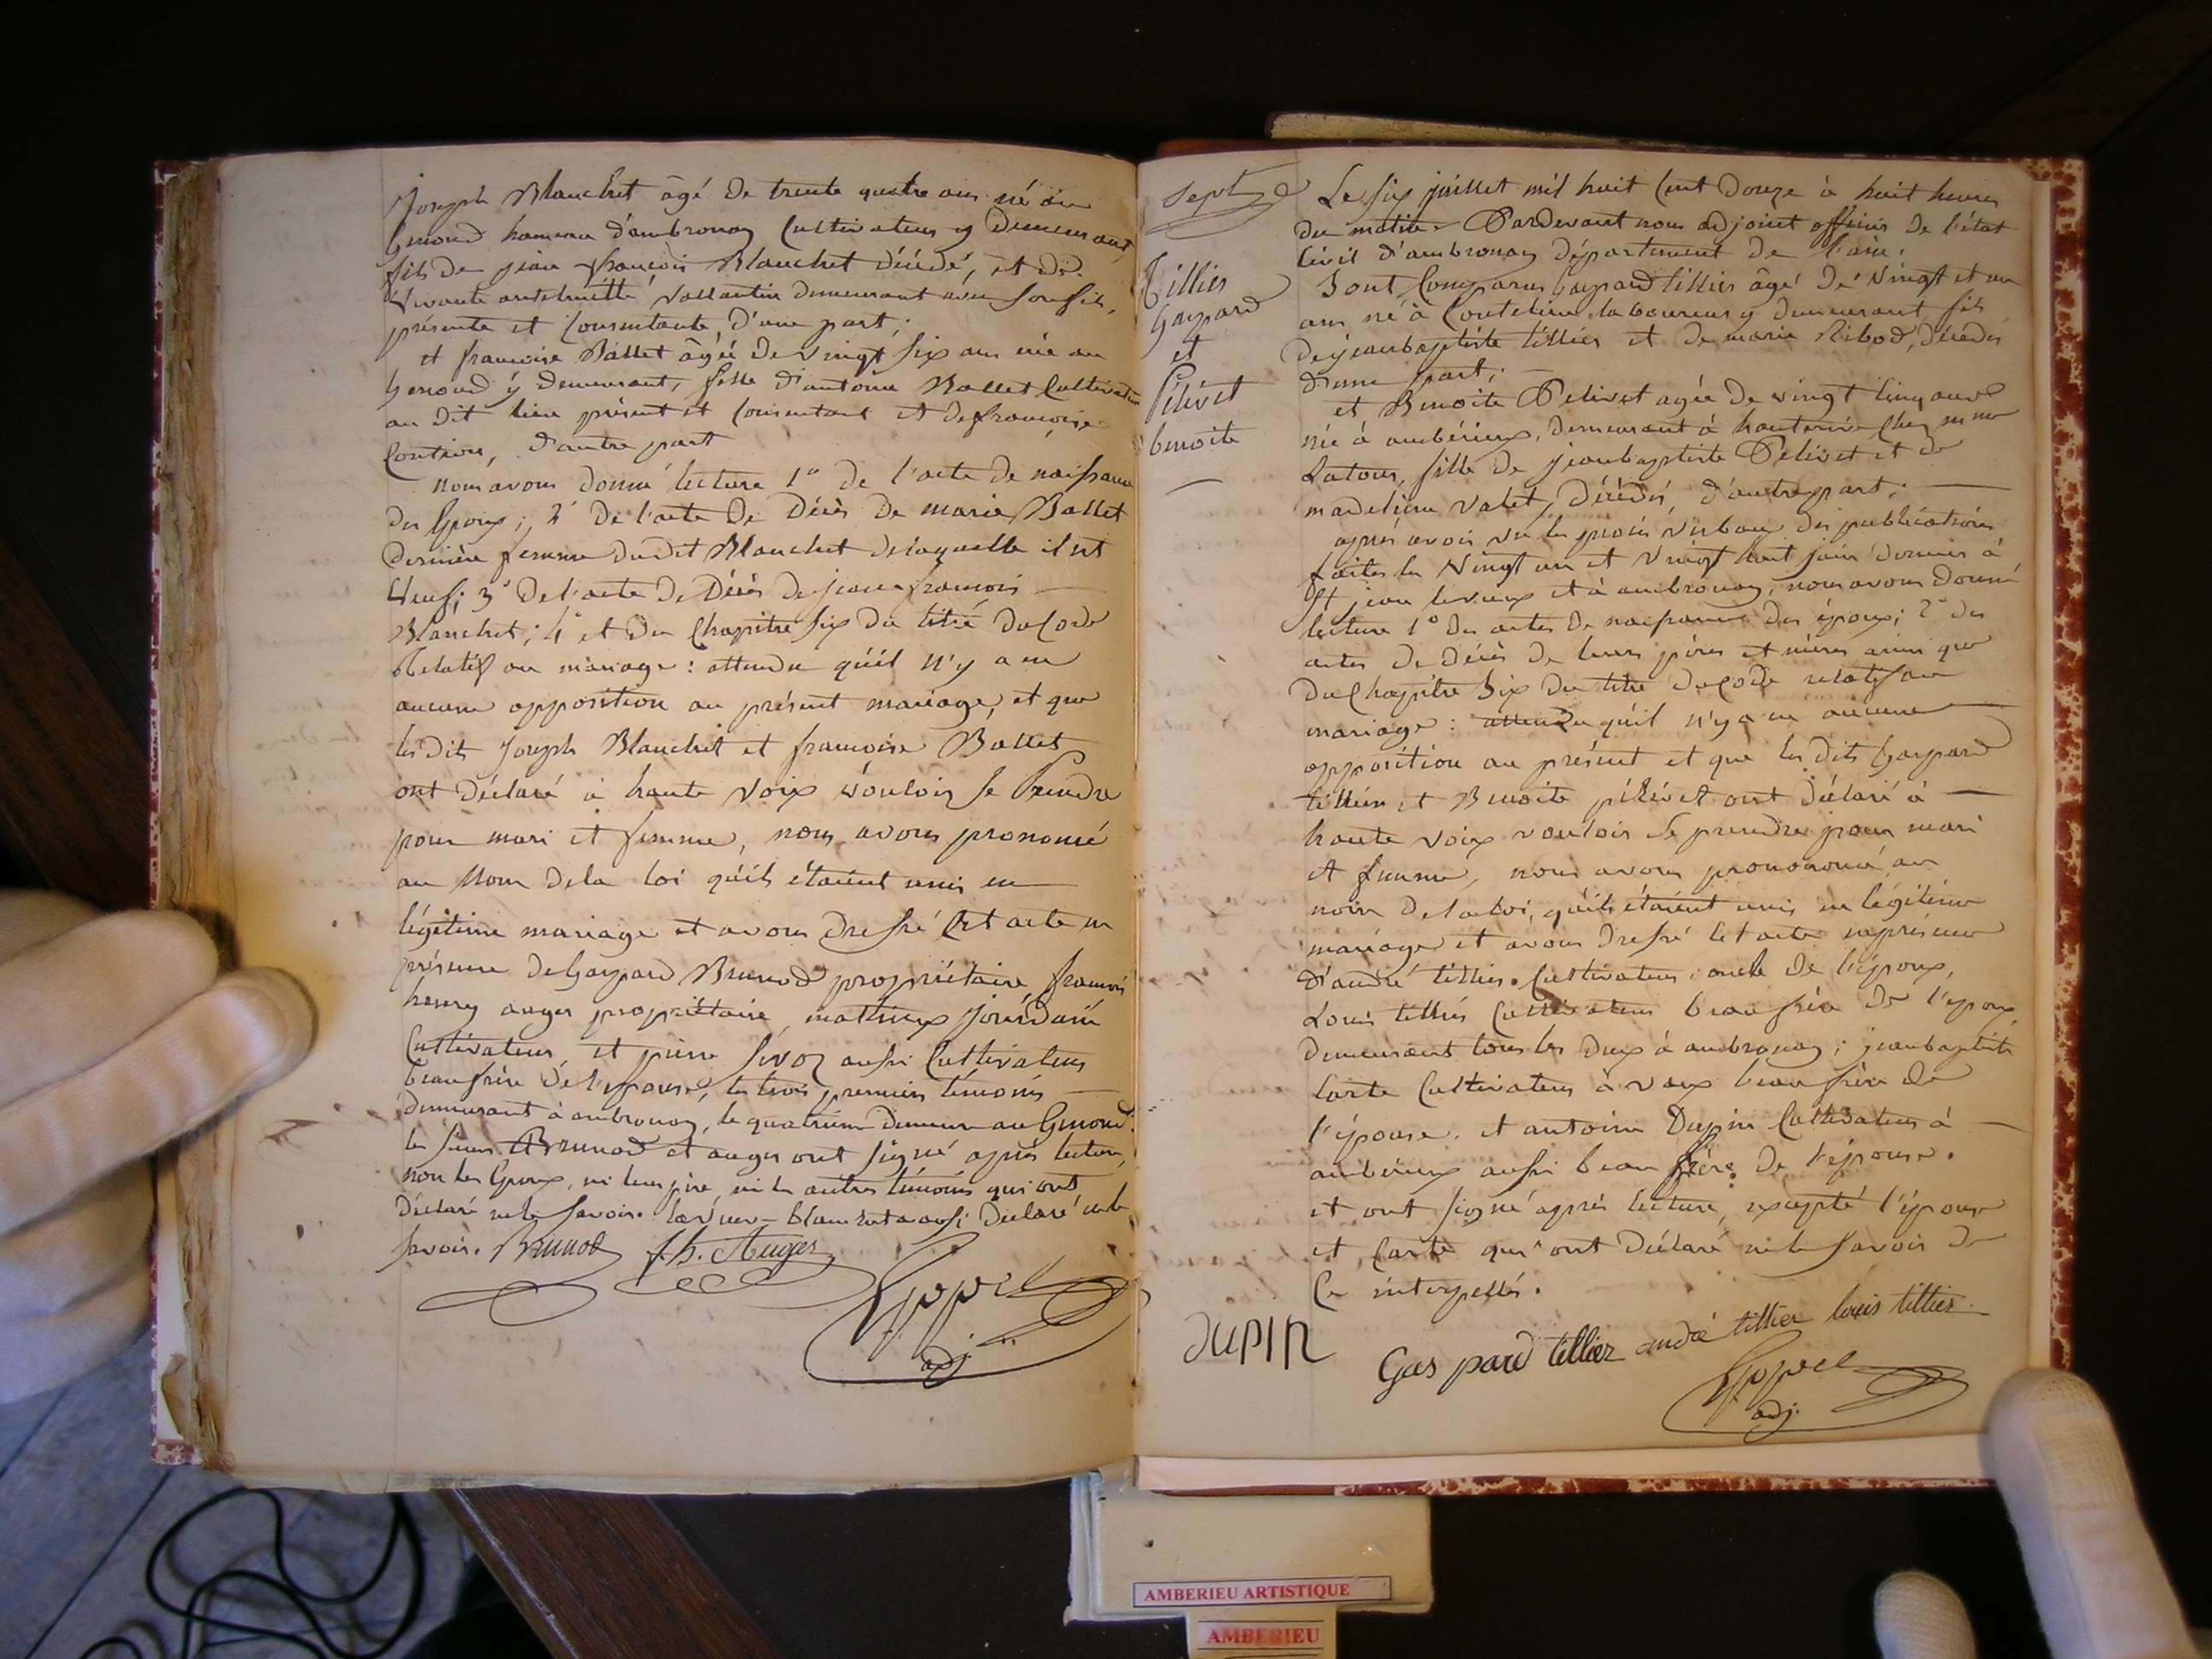 Joseph Blanchet âgé de trente quatre ans né au
Genoud hameau d'ambronay Cultivateur y demeurant,
fils de jean françois Blanchet décédé, et de
vivante anthelmette Vallantin demeurant avec son fils,
présente et Consentante, d'une part;
et francoise Ballet âgée de vingt six ans née au
genoud y demeurant, fille d'antoine Ballet Cultivateur
au dit lieu présent et Consentant et de françoise
d'autre part
nous avons donné lecture 1º de l'acte de naissance
des Epoux; 2º de l'acte de Décès de marie Ballet
dernière femme dudit Blanchet de laquelle il est
Veuf; 3º de l'acte de Décès de jean françois
Blanchet; 4º et du Chapitre six du titre du Code
Relatif au mariage: attendu qu'il n'y a eu
aucune opposition au présent mariage, et que
les dits Joseph Blanchet et françoise Ballet
ont déclaré à haute Voix vouloir se Prendre
pour mari et femme, nous avons prononcé
au Nom de la loi qu'ils étaient unis en
légitime mariage et avons dressé Cet acte en
présence de Gaspard Brunod propriétaire, françois
henry auger propriétaire, mathieux Jourdain
Cultivateur, et pierre aussi Cultivateur
beaufrère de l'epouse, les trois premiers témoins
demeurant à ambronay, le quatrième Demeure au Genoud.
les sieurs Brunod et auger ont signé après lecture,
non les Epoux, ni leur père, ni les autres témoins qui ont
déclaré ne le savoir. la veuve Blanchet a aussi Déclaré ne le
savoir. Brunod f. h. Auger
adj.
Sept
Tillier
Gaspard
et
Pélivet
benoite
Le six juillet mil huit Cent Douze à huit heures
du matin Pardevant nous adjoint officier de l'état
Civil d'ambronay département de l'ain.
Sont Comparus Gaspard tillier âgé de Vingt et un
ans né à Coutelieu laboureur y demeurant, fils
de jeanbaptiste tillier et de marie Ribod, décédés
d'une part;
et Benoite Pelivet agée de vingt Cinq ans
née à ambérieux, demeurant à hauterive Chez mme
Latour, fille de jeanbaptiste Pelivet et de
madeleine Valet, Décédés, d'autre part;
après avoir vu les procès verbaux des publications
faites les Vingt un et Vingt huit juin dernier à
St jean levieux et à ambronay, nous avons donné
lecture 1º des actes de naissance des époux; 2º des
actes de décès de leurs pères et mères ainsi que
du Chapitre Six du titre du Code relatif au
mariage: attendu qu'il n'y a eu aucune
opposition au présent et que les dits Gaspard
tillier et Benoite pélivet ont déclaré à
haute voix vouloir Se prendre pour mari
et femme, nous avons prononcé au
nom de la loi, qu'ils étaient unis en légitime
mariage et avons dressé Cet acte en présence
d'andré tillier Cultivateur oncle de l'époux,
Louis tillier Cultivateur beau frère de l'époux
demeurant tous les deux à ambronay; jeanbaptiste
Carte Cultivateur à vaux beau frère de
l'épouse, et antoine Dupin Cultivateur à
ambérieux aussi beau frère de l'épouse.
et ont signé après lecture, excepté l'épouse
et Carte qui ont Déclaré ne le savoir de
Ce interpellés.
DUPIN Gaspard tillier andré tillier louis tillier
adj.
AMBERIEU ARTISTIQUE
AMBERIEU